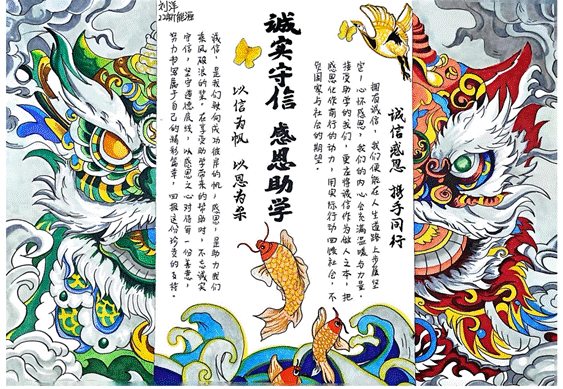 刘洋
诚信感恩 携手同行
拥有诚信，我们便能在人生道路上步履坚
定；心怀感恩，我们的内心会充满温暖与力量。
接受助学的我们，更应将诚信作为做人之本，把
感恩化作前行的动力，用实际行动回馈社会，不
负国家与社会的期望。
诚实守信 感恩助学
以信为帆 以恩为桨
诚信，是我们驶向成功彼岸的帆；感恩，是助力我们
乘风破浪的桨。在享受助学带来的帮助时，不忘诚实
守信，坚守道德底线，以感恩之心对待每一份善意，
努力书写属于自己的精彩篇章，回报这份珍贵的支持。